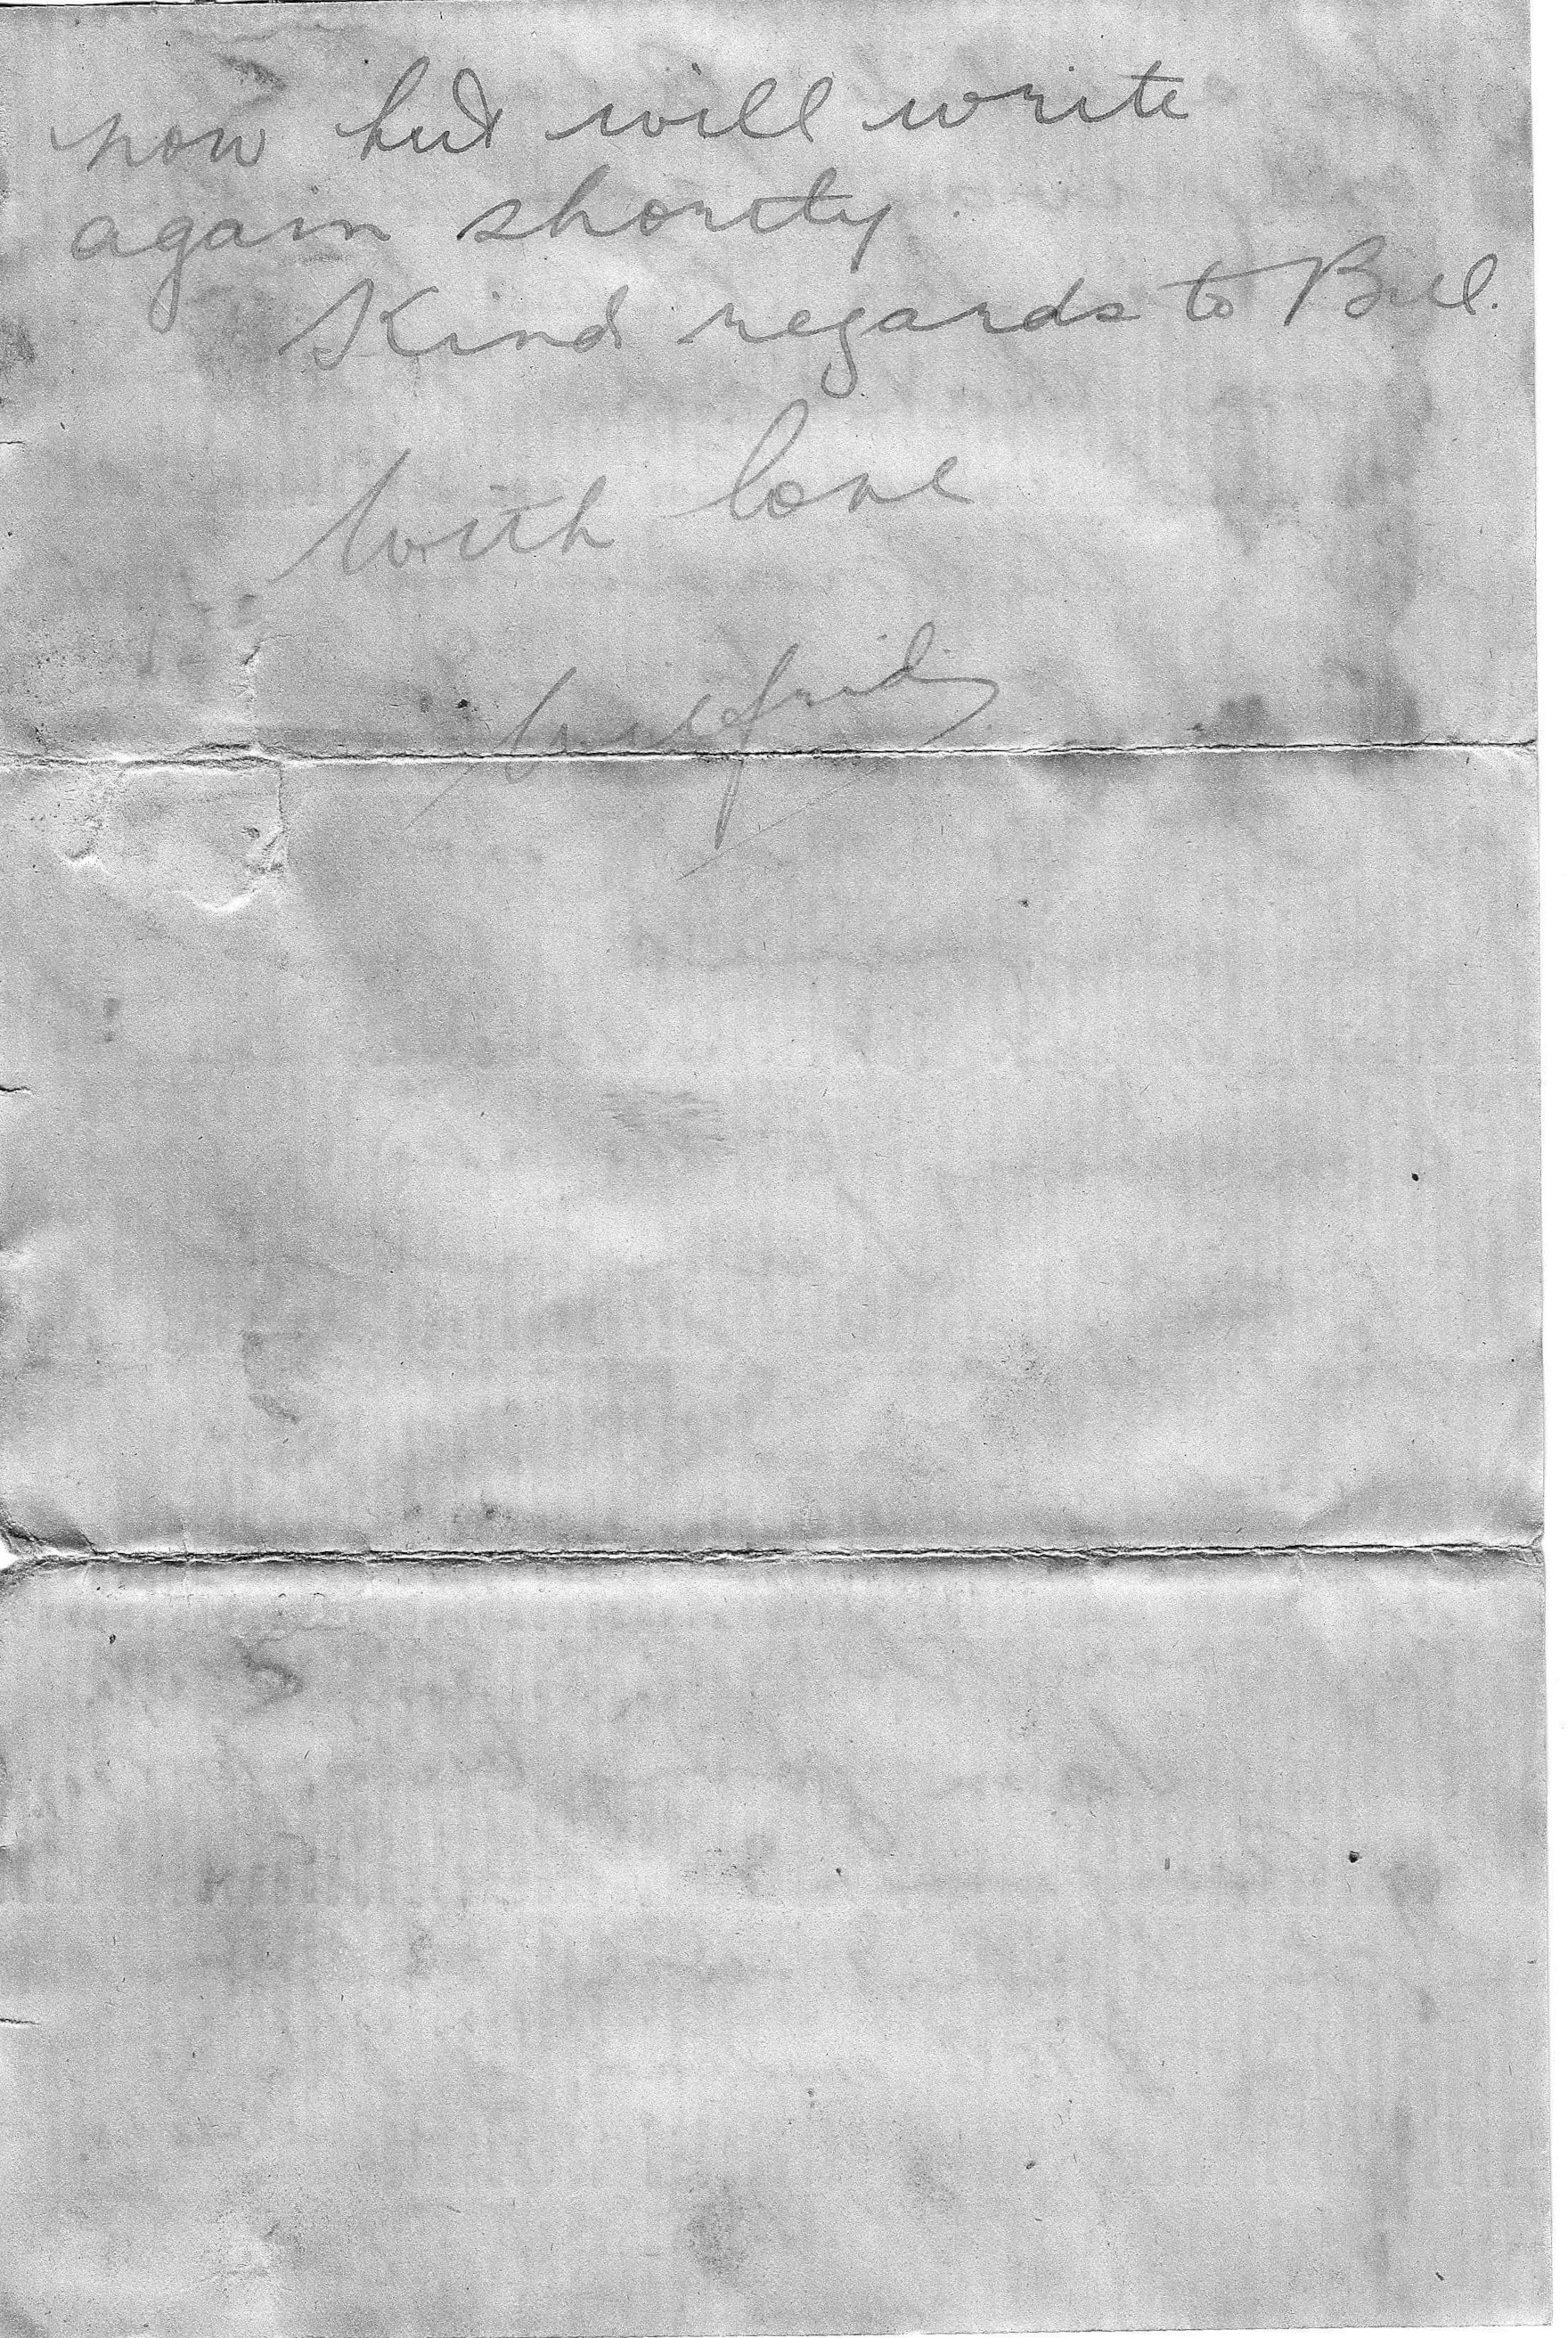 now but will write
again shortly.
Kind regards to Bill.
With love
Wilfrid